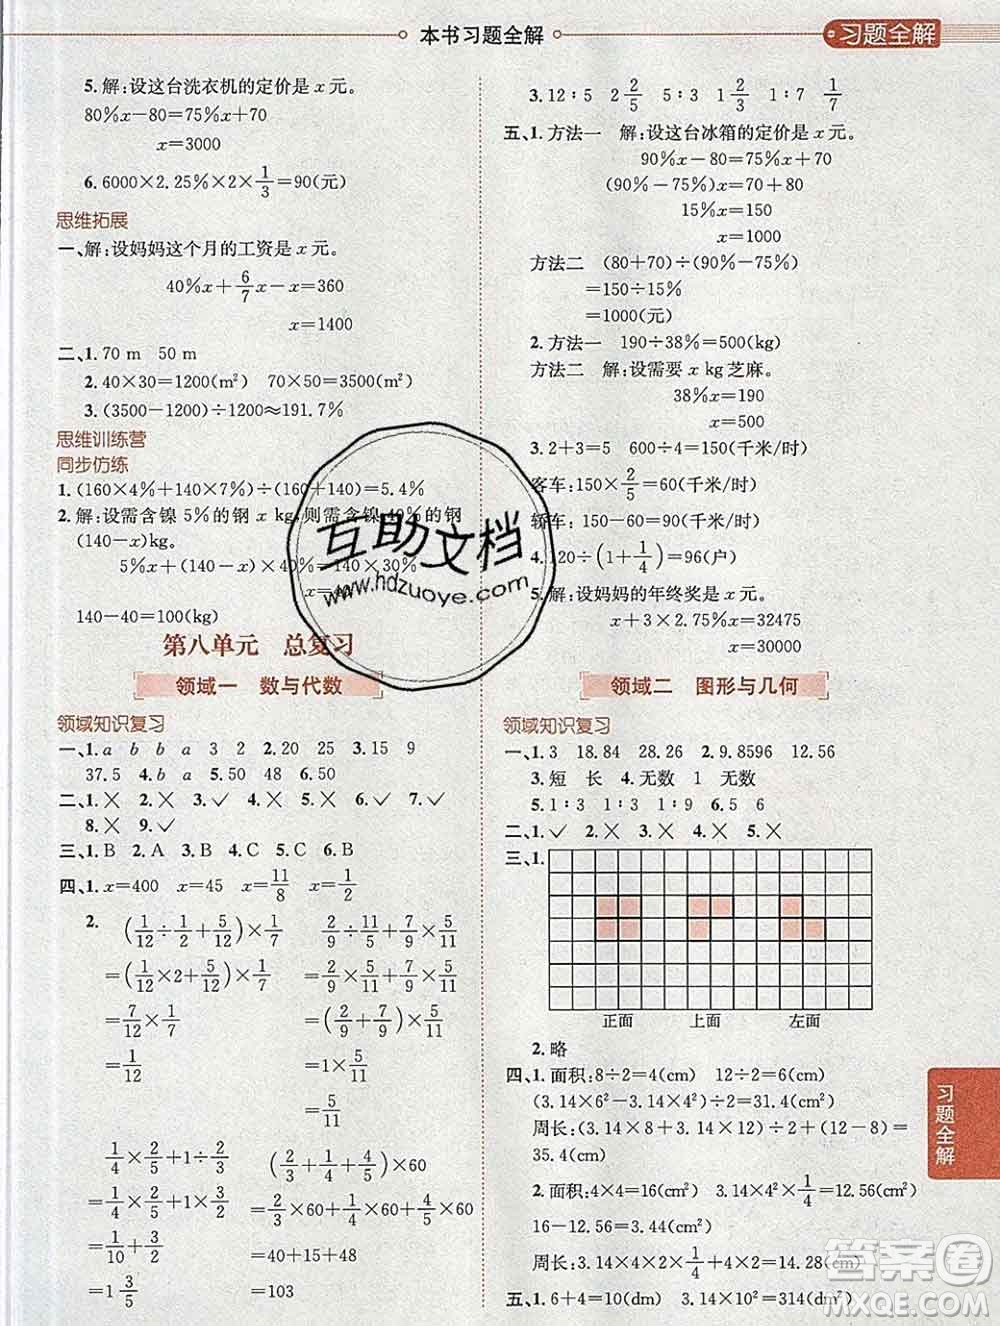 本书习题全解
习题全解
5. 解:设这台洗衣机的定价是 x 元。
80%x-80=75%x+70
x=3000
6. 6000×2.25%×2×1/3=90(元)
思维拓展
一、解:设妈妈这个月的工资是 x 元。
40%x+6/7x-x=360
x=1400
二、1. 70 m 50 m
2. 40×30=1200(m²) 70×50=3500(m²)
3. (3500-1200)÷1200≈191.7%
思维训练营
同步仿练
1. (160×4%+140×7%)÷(160+140)=5.4%
2. 解:设需含镍 5%的钢 x kg,则需含镍 40%的钢
(140-x)kg。
5%x+(140-x)×40%=140×30%
x=
140-40=100(kg)
第八单元 总复习
领域一 数与代数
领域知识复习
一、1. a b b a 3 2 2. 20 25 3. 15 9
37.5 4. b a 5. 50 48 6. 50
二、1. × 2. × 3. ✓ 4. × 5. × 6. ✓ 7. ✓
8. × 9. ✓
三、1. B 2. A 3. B 4. B 5. C 6. B
四、1. x=400 x=45 x=11/8 x=1/2
2. (1/12÷1/2+5/12)×1/7 2/9÷11/5+7/9×5/11
=(1/12×2+5/12)×1/7 =2/9×5/11+7/9×5/11
=7/12×1/7 =(2/9+7/9)×5/11
=1/12 =1×5/11
=5/11
1/4×2/5+1÷5/8 (2/3+1/4+4/5)×60
=1/4×2/5+1×8/5 =2/3×60+1/4×60+4/5×60
=1/10+3/2 =40+15+48
=1 3/5 =103
3. 12∶5 2 2/5 5∶3 1 2/3 1∶7 1/7
五、1. 方法一 解:设这台冰箱的定价是 x 元。
90%x-80=75%x+70
(90%-75%)x=70+80
15%x=150
x=1000
方法二 (80+70)÷(90%-75%)
=150÷15%
=1000(元)
2. 方法一 190÷38%=500(kg)
方法二 解:设需要 x kg 芝麻。
38%x=190
x=500
3. 2+3=5 600÷4=150(千米/时)
客车:150×2/5=60(千米/时)
轿车:150-60=90(千米/时)
4. 120÷(1+1/4)=96(户)
5. 解:设妈妈的年终奖是 x 元。
x+3×2.75%x=32475
x=30000
领域二 图形与几何
领域知识复习
一、1. 3 18.84 28.26 2. 9.8596 12.56
3. 短 长 4. 无数 1 无数
5. 1∶3 1∶3 1∶9 6. 5 6
二、1. ✓ 2. × 3. × 4. × 5. ×
三、1.
正面 上面 左面
2. 略
四、1. 面积:8÷2=4(cm) 12÷2=6(cm)
(3.14×6²-3.14×4²)÷2=31.4(cm²)
周长:(3.14×8+3.14×12)÷2+(12-8)=
35.4(cm)
2. 面积:4×4=16(cm²) 3.14×4²×1/4=12.56(cm²)
16-12.56=3.44(cm²)
周长:3.14×4×2×1/4+4×2=14.28(cm)
五、1. 6+4=10(dm) 3.14×10²=314(dm²)
习题全解
互助文档
www.hdzuoye.com
答案圈
MXQE.COM